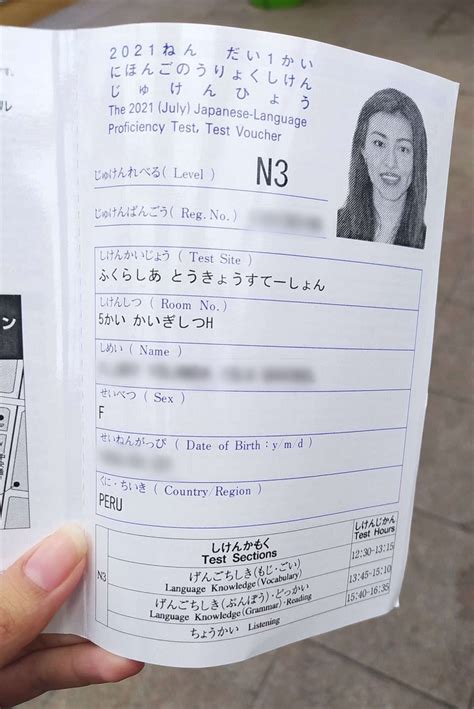 2021ねん だい1かい
にほんごのうりょくしけん
じゅけんひょう
The 2021 (July) Japanese-Language
Proficiency Test, Test Voucher
じゅけんれべる( Level ) N3
じゅけんばんごう( Reg. No. )
しけんかいじょう ( Test Site )
ふくらしあ とうきょうすてーしょん
しけんしつ ( Room No. )
5かい かいぎしつH
しめい ( Name )
せいべつ ( Sex )
F
せいねんがっぴ ( Date of Birth : y/m/d )
くに・ちいき ( Country/Region )
PERU
しけんかもく しけんじかん
Test Sections Test Hours
N3
げんごちしき(もじ・ごい) 12:30-13:15
Language Knowledge(Vocabulary)
げんごちしき(ぶんぽう)・どっかい 13:45-15:10
Language Knowledge(Grammar)・Reading
ちょうかい Listening 15:40-16:35
ル
ン